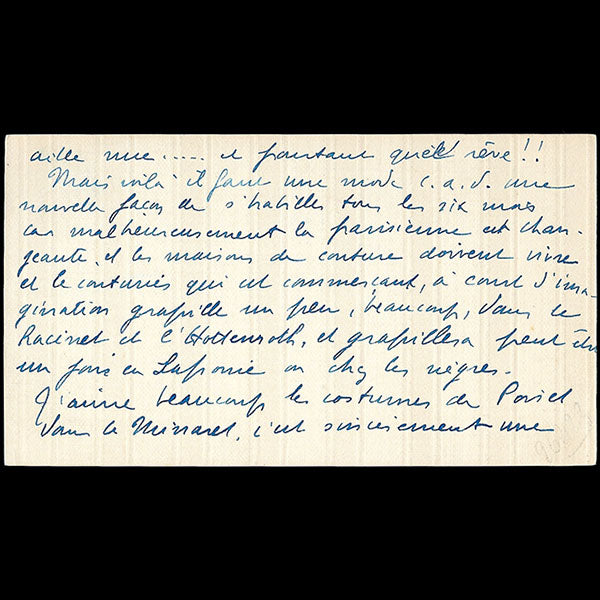 aille nue ..... et pourtant quel rêve !!
Mais voilà il faut une mode c. a. d. une
nouvelle façon de s'habiller tous les six mois
car malheureusement la parisienne est chan-
geante, et les maisons de couture doivent vivre
et le couturier qui est commerçant, à court d'ima-
gination grapille un peu, beaucoup, dans le
Racinet et l'Hottenroth, et grapillera peut être
un jour en Laponie ou chez les nègres.
J'aime beaucoup les costumes de Poiret
dans le Minaret, c'est sincèrement une